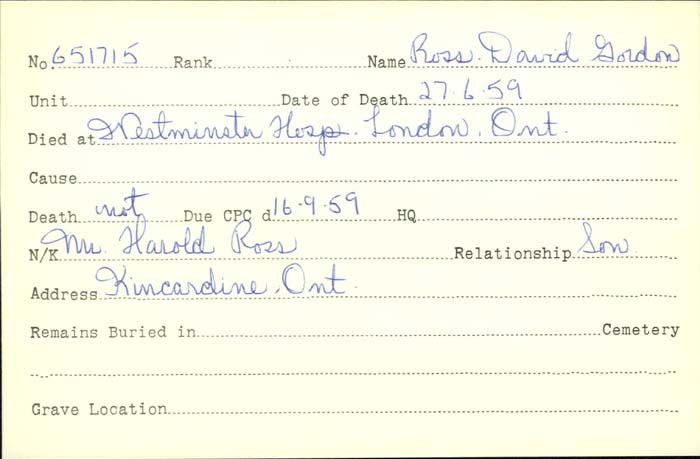 No 651715 Rank Name Ross. David Gordon
Unit Date of Death 27.6.59
Died at Westminster Hosp. London. Ont.
Cause
Death not Due CPC d 16.9.59 HQ
N/K Mr. Harold Ross Relationship Son
Address Kincardine. Ont.
Remains Buried in Cemetery
Grave Location